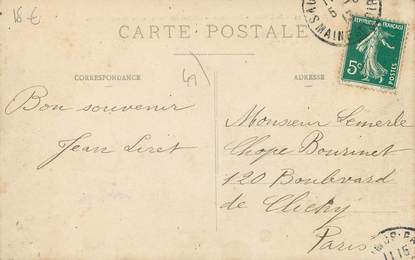 18 €
CARTE POSTALE
49
CORRESPONDANCE
ADRESSE
REPUBLIQUE FRANÇAISE
5c
POSTES
Bon souvenir
Jean Liret
Monsieur Lemerle
Chope Boursinet
120 Boulevard
de Clichy
Paris